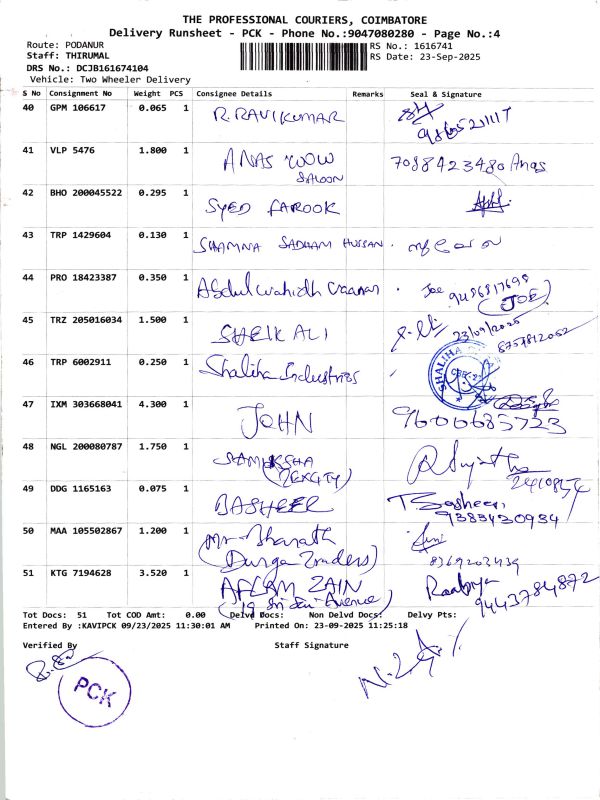 THE PROFESSIONAL COURIERS, COIMBATORE
Delivery Runsheet - PCK - Phone No.:9047080280 - Page No.:4
Route: PODANUR RS No.: 1616741
Staff: THIRUMAL RS Date: 23-Sep-2025
DRS No.: DCJB161674104
Vehicle: Two Wheeler Delivery
S No Consignment No Weight PCS Consignee Details Remarks Seal & Signature
40 GPM 106617 0.065 1 R. RAVIKUMAR
41 VLP 5476 1.800 1 ANAS WOW 7088423480 Anas
SALOON
42 BHO 200045522 0.295 1 SYED FAROOK
43 TRP 1429604 0.130 1 SHAMNA SADHAM HUSSAN
44 PRO 18423387 0.350 1 Abdul wahidh Joe 9486817698
(JOE)
45 TRZ 205016034 1.500 1 SHEIK ALI 23/09/2025
8757812062
46 TRP 6002911 0.250 1 Shaliha Industries SHALIHA
47 IXM 303668041 4.300 1 JOHN 9600685723
48 NGL 200080787 1.750 1 SAMIKSHA
49 DDG 1165163 0.075 1 BASHEER Basheer
9385430934
50 MAA 105502867 1.200 1 Mr. Bharath
(Durga Traders) 8369203439
51 KTG 7194628 3.520 1 AFLAM ZAIN
(19 Sri Sai Avenue) 9443784872
Tot Docs: 51 Tot COD Amt: 0.00 Delvd Docs: Non Delvd Docs: Delvy Pts:
Entered By :KAVIPCK 09/23/2025 11:30:01 AM Printed On: 23-09-2025 11:25:18
Verified By Staff Signature
PCK